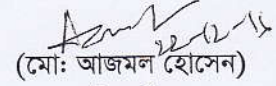 22-12-15
(মোঃ আজমল হোসেন)